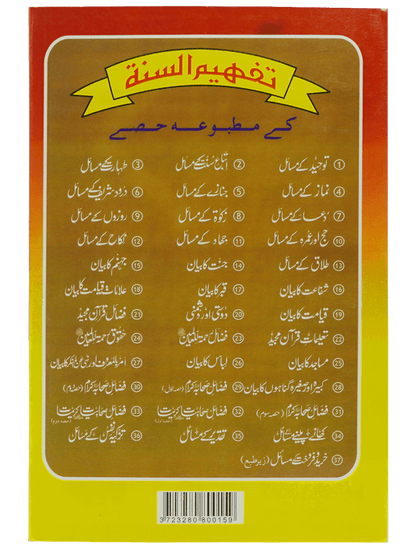 تفہیم السنة
کے مطبوعہ حصے
① توحید کے مسائل ② اتباع سنت کے مسائل ③ طہارت کے مسائل
④ نماز کے مسائل ⑤ جنازے کے مسائل ⑥ درود شریف کے مسائل
⑦ دعا کے مسائل ⑧ زکوٰۃ کے مسائل ⑨ روزوں کے مسائل
⑩ حج اور عمرہ کے مسائل ⑪ جہاد کے مسائل ⑫ نکاح کے مسائل
⑬ طلاق کے مسائل ⑭ جنت کا بیان ⑮ جہنم کا بیان
⑯ شفاعت کا بیان ⑰ قبر کا بیان ⑱ علامات قیامت کا بیان
⑲ قیامت کا بیان ⑳ دوستی اور دشمنی ㉑ فضائل قرآن مجید
㉒ تعلیمات قرآن مجید ㉓ فضائل رحمۃ للعالمین ㉔ حقوق رحمۃ للعالمین
㉕ مساجد کا بیان ㉖ لباس کا بیان ㉗ امر بالمعروف اور نہی عن المنکر کا بیان
㉘ کبیرہ اور صغیرہ گناہوں کا بیان ㉙ فضائل صحابہ کرام (حصہ اول) ㉚ فضائل صحابہ کرام
㉛ فضائل صحابہ کرام (حصہ سوم) ㉜ فضائل صحابیات ㉝ فضائل صحابیات
㉞ کھانے پینے کے مسائل ㉟ تقدیر کے مسائل ㊱ تزکیہ نفس کے مسائل
㊲ خرید و فروخت کے مسائل (زیر طبع)
3723280800159